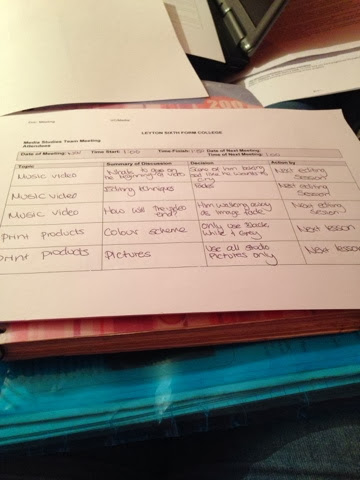 LEYTON SIXTH FORM COLLEGE
Media Studies Team Meeting
Attendees
Date of Meeting: Time Start: 1:00 Time Finish: Date of Next Meeting:
Time of Next Meeting: 1:00
Topic Summary of Discussion Decision Action by
Music video Whats to go on the beginning of video Start of him looking and how he wants to Next editing session
Music video Editing techniques Fades Next editing session
Music video How will the video end? Him walking away as image fade Next editing session
Print products Colour scheme Only use Black White + Grey Next lesson
Print products Pictures Use all studio Pictures only Next lesson